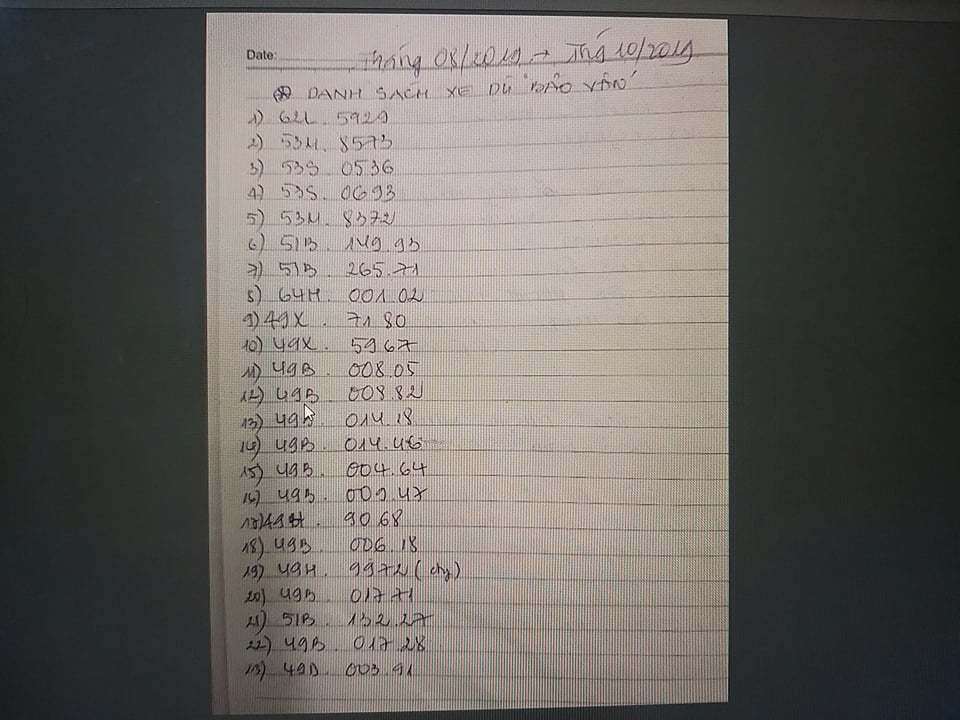 Date: Tháng 08/2019 → Thg 10/2019
DANH SÁCH XE DÙ "BẢO VÂN"
1) 64L. 5929
2) 53M. 8573
3) 53S. 0536
4) 53S. 0693
5) 53M. 8372
6) 51B. 149.93
7) 51B. 265.71
8) 64H. 001.02
9) 49X. 71 80
10) 49X. 5967
11) 49B. 008.05
12) 49B. 008.82
13) 49B. 014.18
14) 49B. 014.46
15) 49B. 004.64
16) 49B. 009.47
17) 49H. 9068
18) 49B. 006.18
19) 49H. 9972 (cty)
20) 49B. 01771
21) 51B. 132.27
22) 49B. 017.28
13) 49B. 003.91